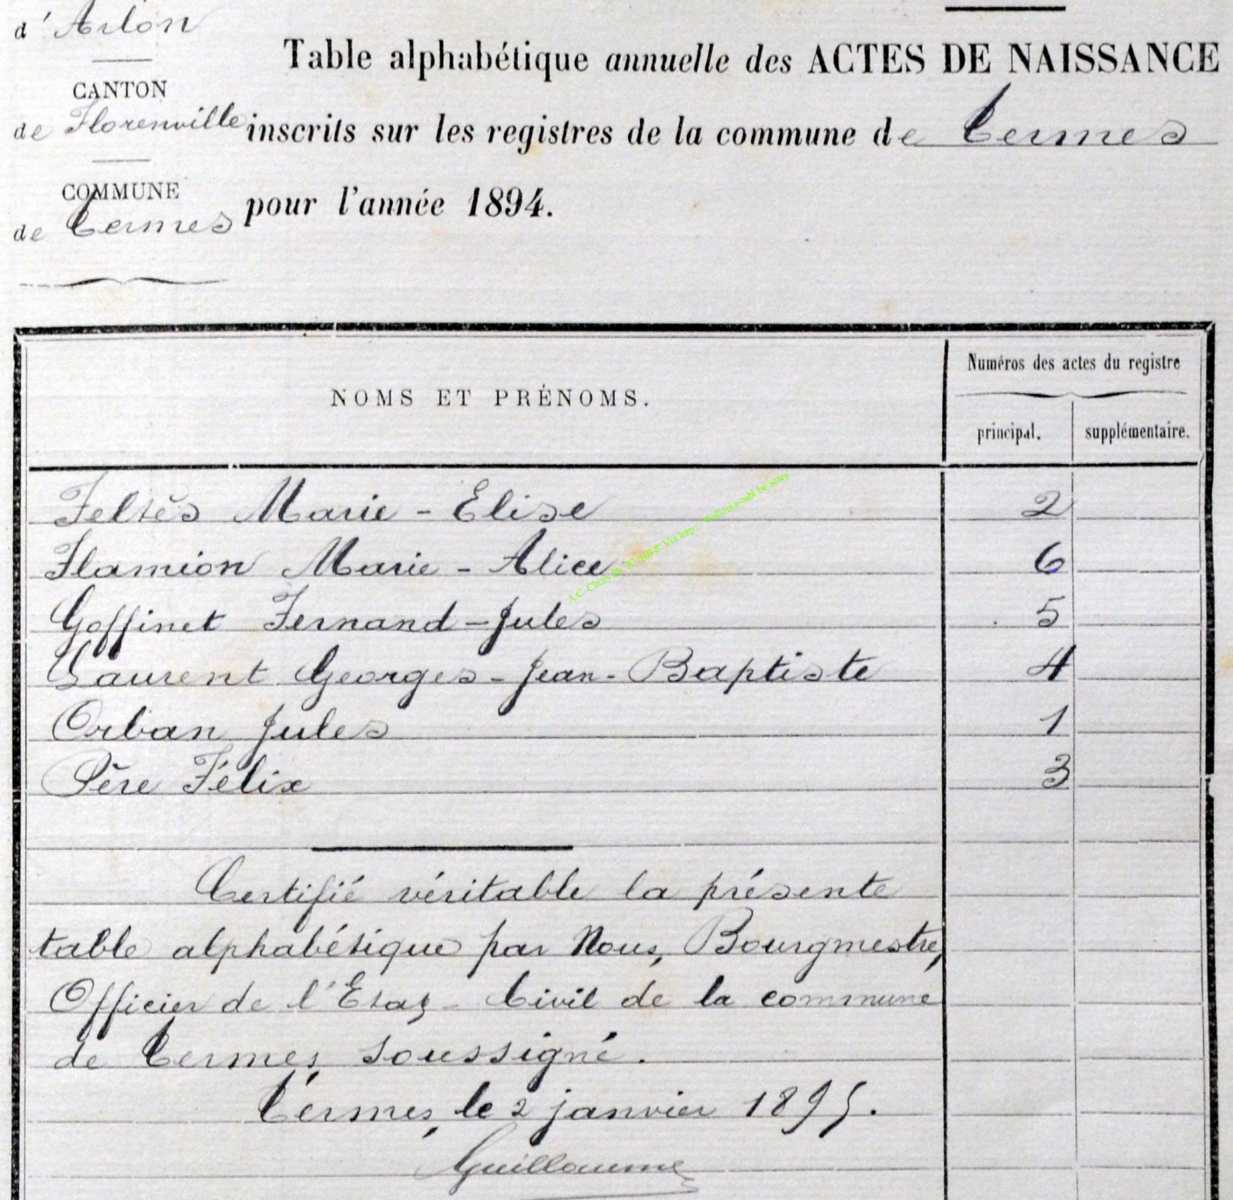 d'Arlon
CANTON
de Florenville
COMMUNE
de Termes
Table alphabétique annuelle des ACTES DE NAISSANCE
inscrits sur les registres de la commune de Termes
pour l'année 1894.
NOMS ET PRÉNOMS.
Numéros des actes du registre
principal. supplémentaire.
Feltès Marie - Elise 2
Flamion Marie - Alice 6
Goffinet Fernand - Jules 5
Laurent Georges - Jean - Baptiste 4
Orban Jules 1
Père Félix 3
Certifié véritable la présente
table alphabétique par Nous, Bourgmestre,
Officier de l'Etat - Civil de la commune
de Termes soussigné.
Termes, le 2 janvier 1895.
Guillaume